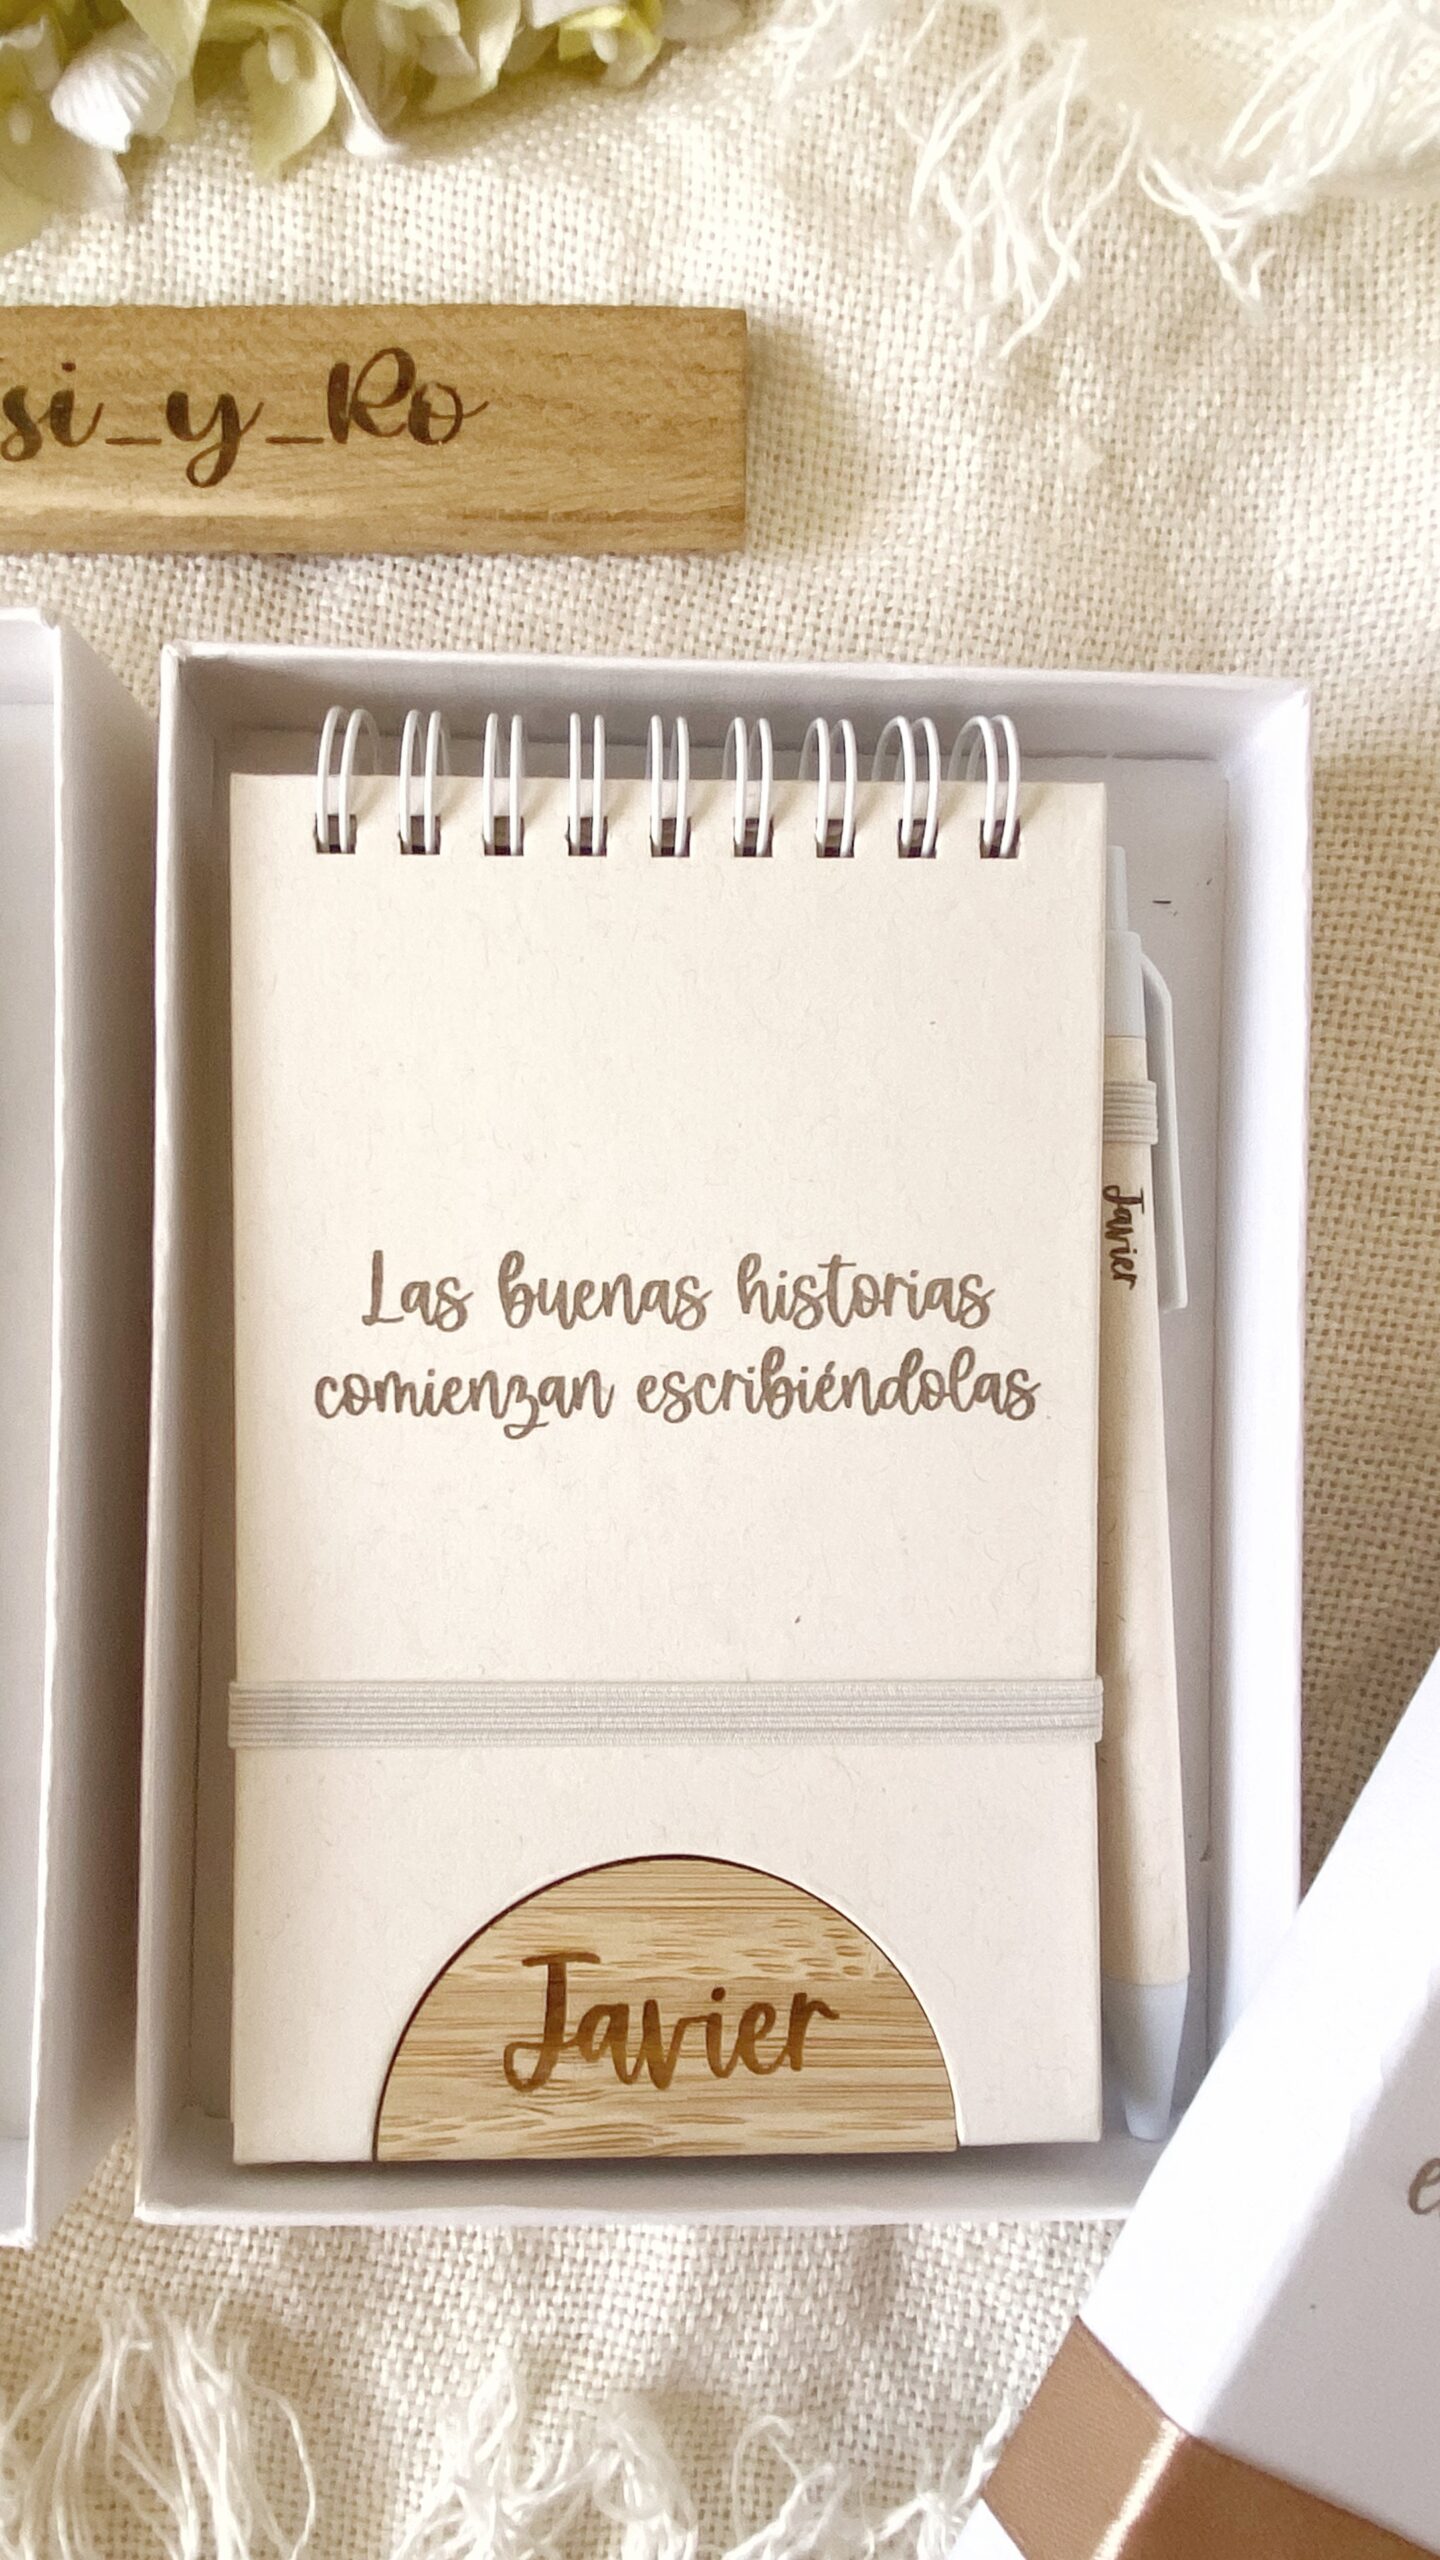 si_y_Ro
Las buenas historias
comienzan escribiéndolas
Javier
Javier